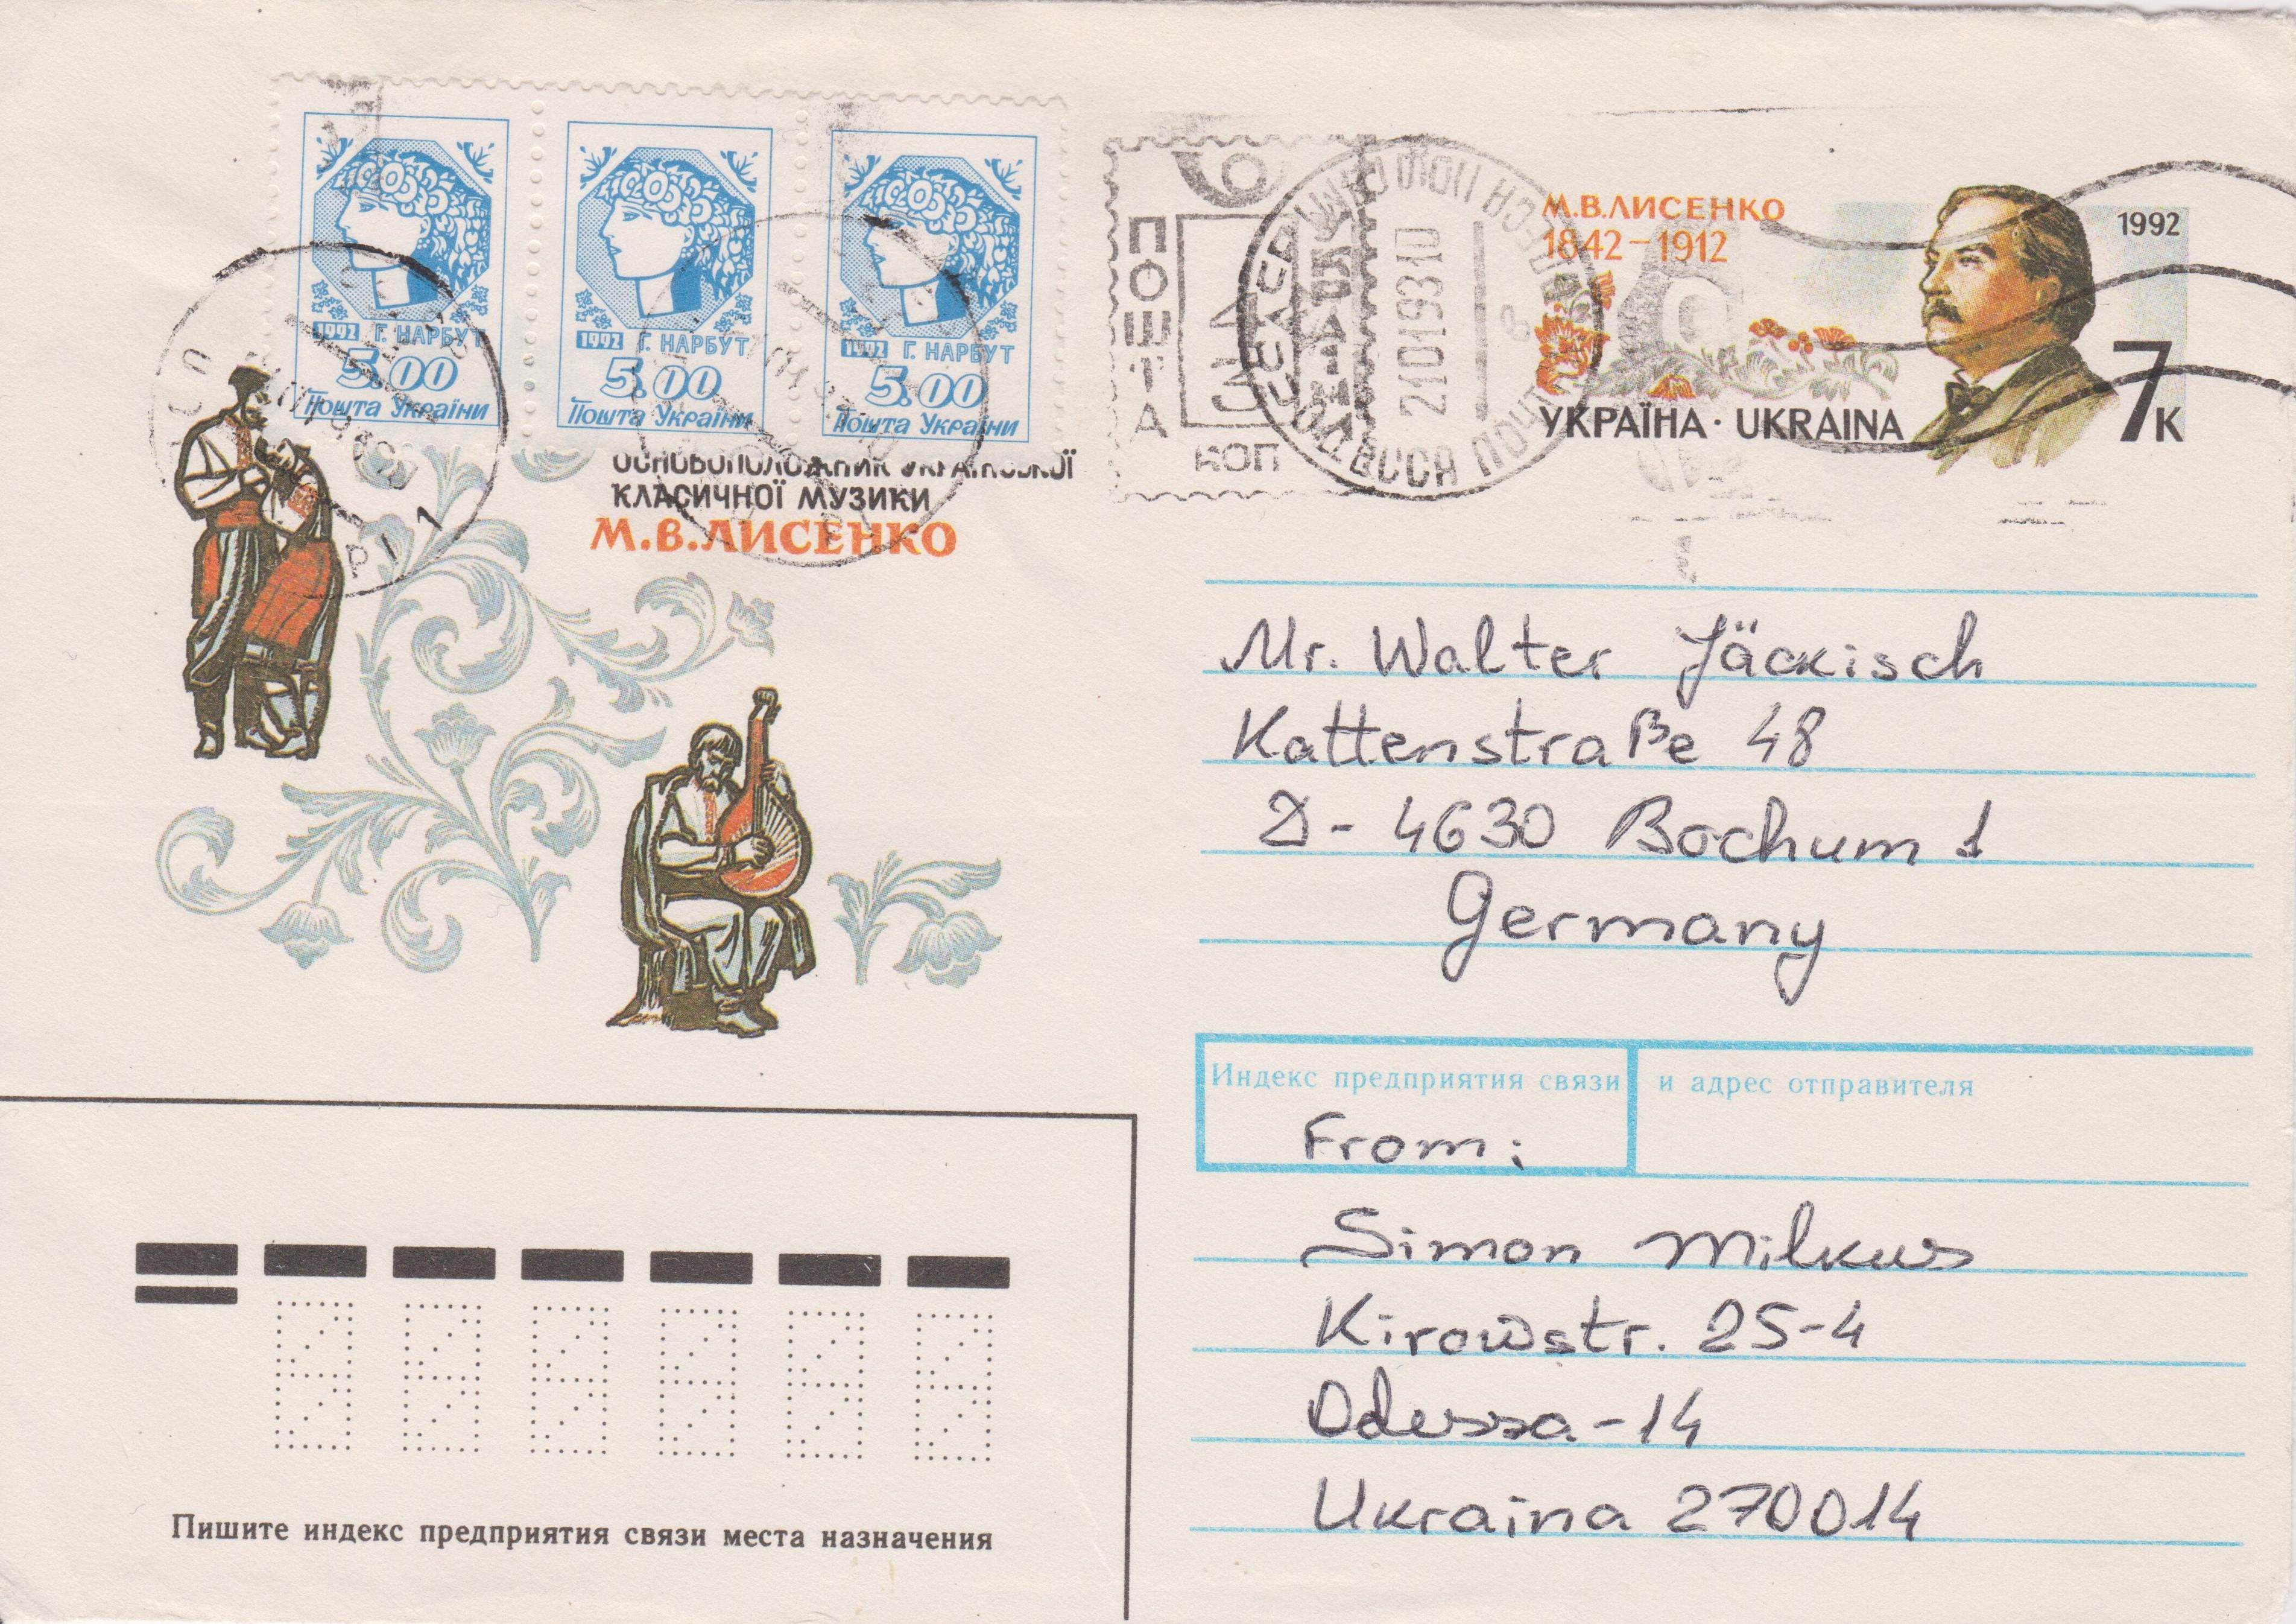 1992 Г. НАРБУТ
5.00
Пошта України
1992 Г. НАРБУТ
5.00
Пошта України
1992 Г. НАРБУТ
5.00
Пошта України
ПОШТА
КОП
21019310
ОДЕССА
М.В.ЛИСЕНКО
1842-1912
1992
УКРАЇНА · UKRAINA
7к
ОСНОВОПОЛОЖНИК УКРАЇНСЬКОЇ
КЛАСИЧНОЇ МУЗИКИ
М.В.ЛИСЕНКО
Mr. Walter Jäckisch
Kattenstraße 48
D-4630 Bochum 1
Germany
Индекс предприятия связи и адрес отправителя
From:
Simon Milkus
Kirowstr. 25-4
Odessa-14
Ukraina 270014
Пишите индекс предприятия связи места назначения